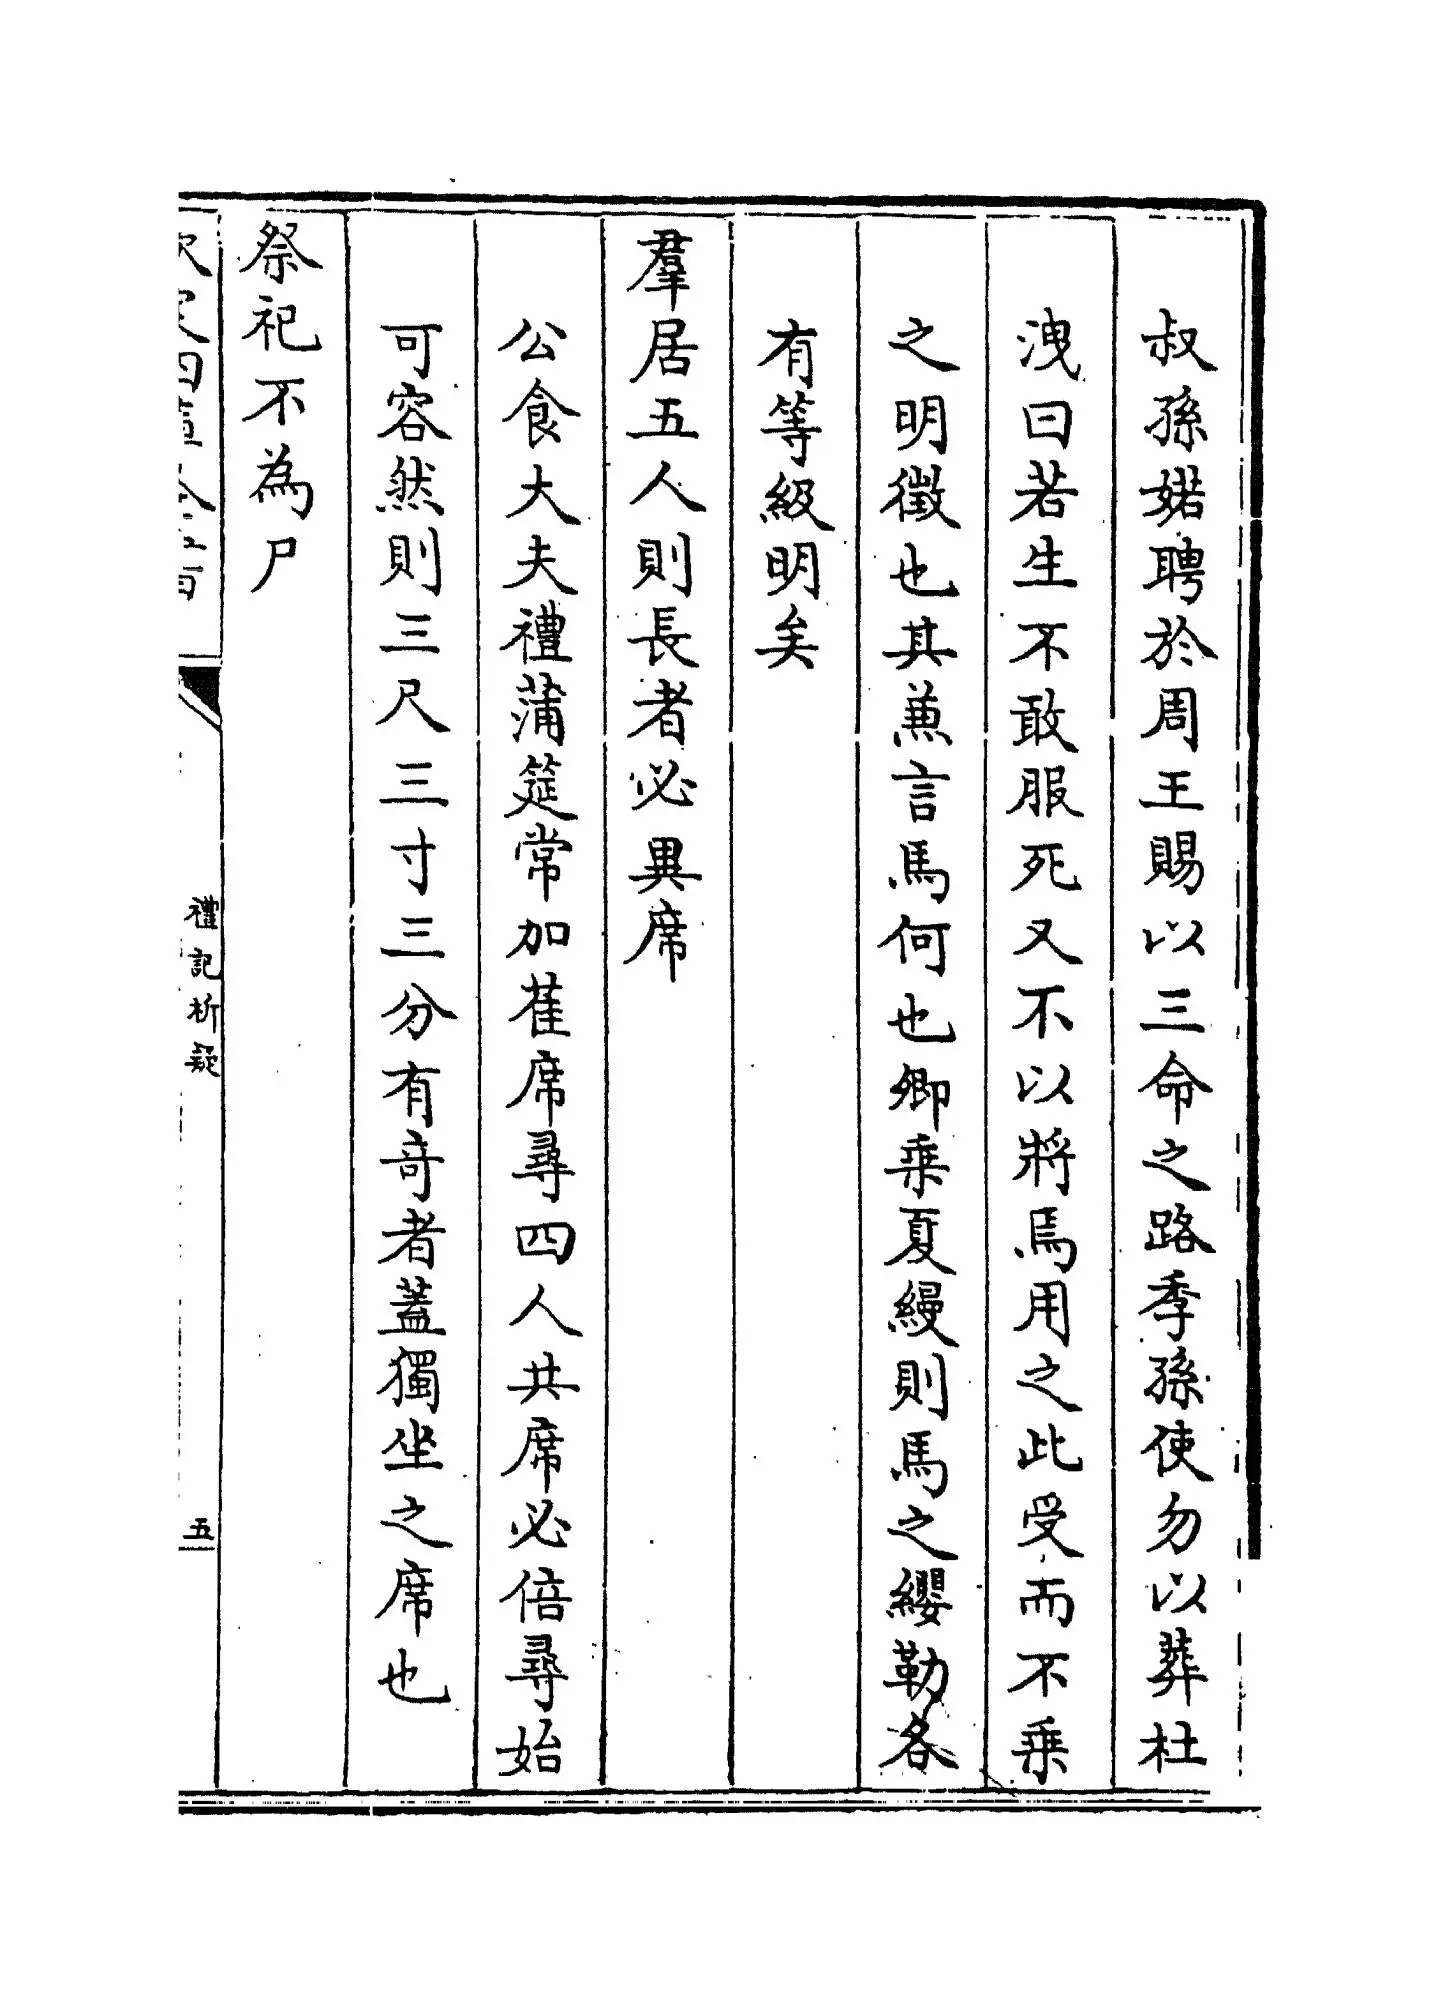 叔孫婼聘於周王賜以三命之路季孫使勿以葬杜
洩曰若生不敢服死又不以將焉用之此受而不乗
之明徵也其兼言馬何也卿乗夏縵則馬之纓勒各
有等級明矣
羣居五人則長者必異席
公食大夫禮蒲筵常加萑席尋四人共席必倍尋始
可容然則三尺三寸三分有竒者蓋獨坐之席也
祭祀不為尸
禮記析疑
五